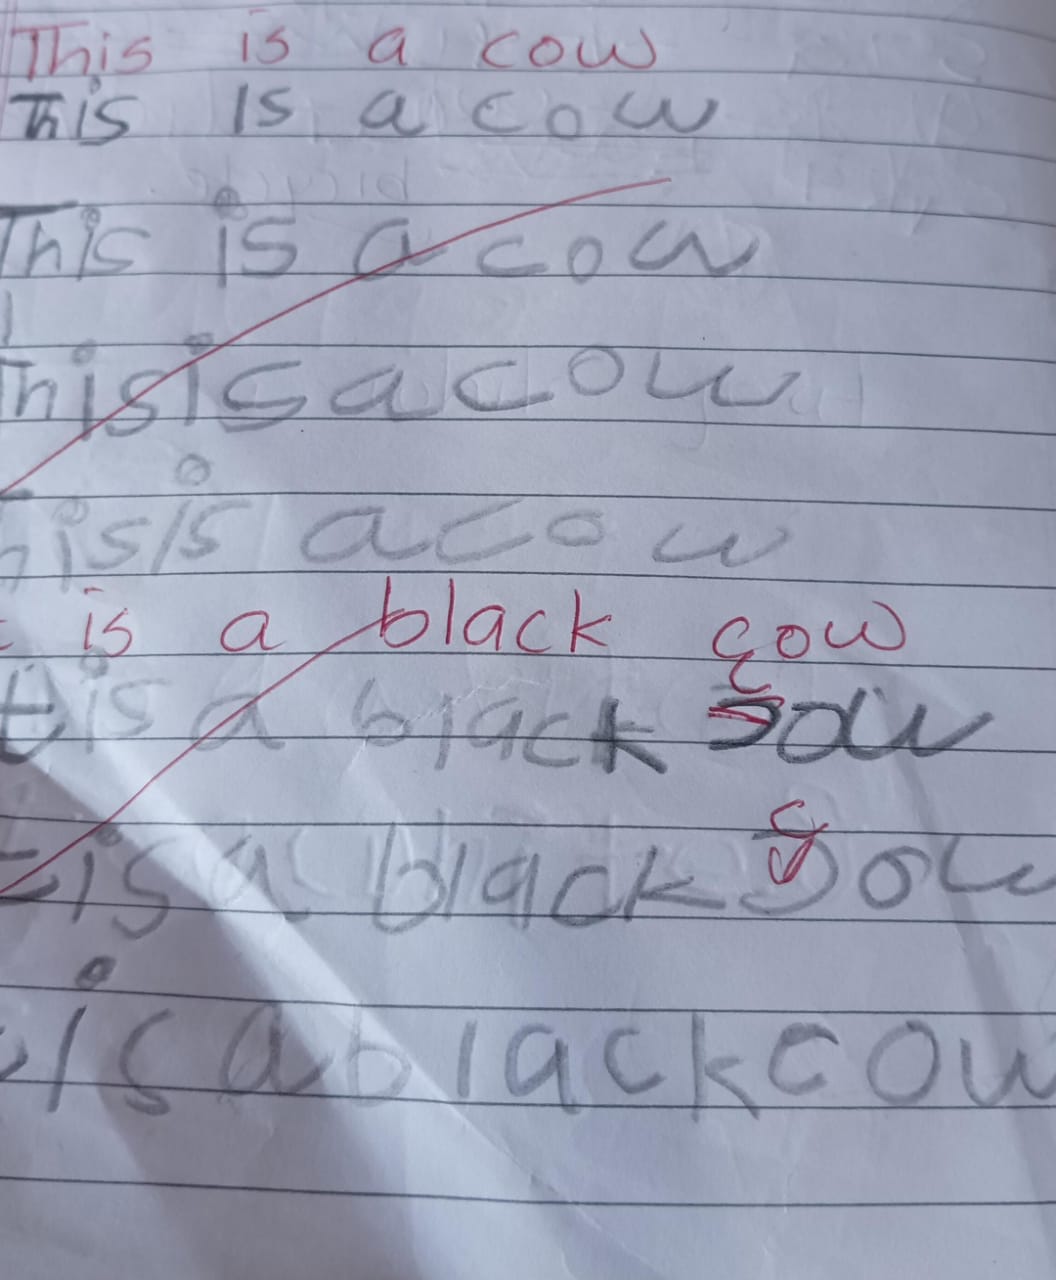 This is a cow
This is a cow
This is a cow
This is a cow
his is a cow
is a black cow
t is a black cow
t is a black cow
is a black cow